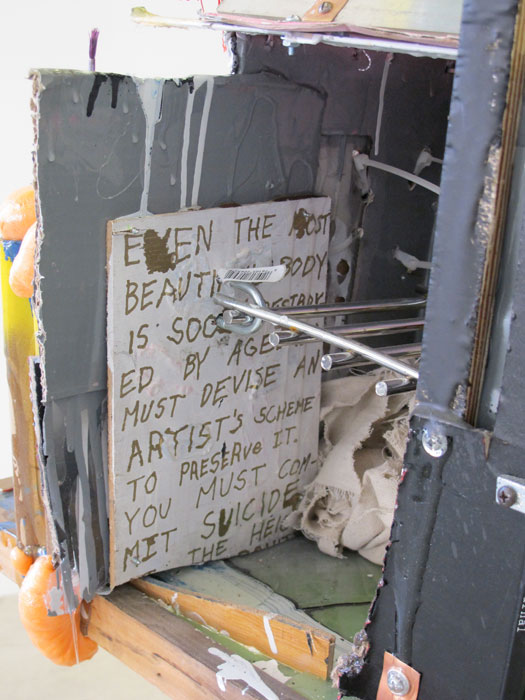 EVEN THE MOST
BEAUTI BODY
IS SOO DESTROY
ED BY AGE
MUST DEVISE AN
ARTIST'S SCHEME
TO PRESERVE IT.
YOU MUST COM-
MIT SUICIDE
THE HEIG